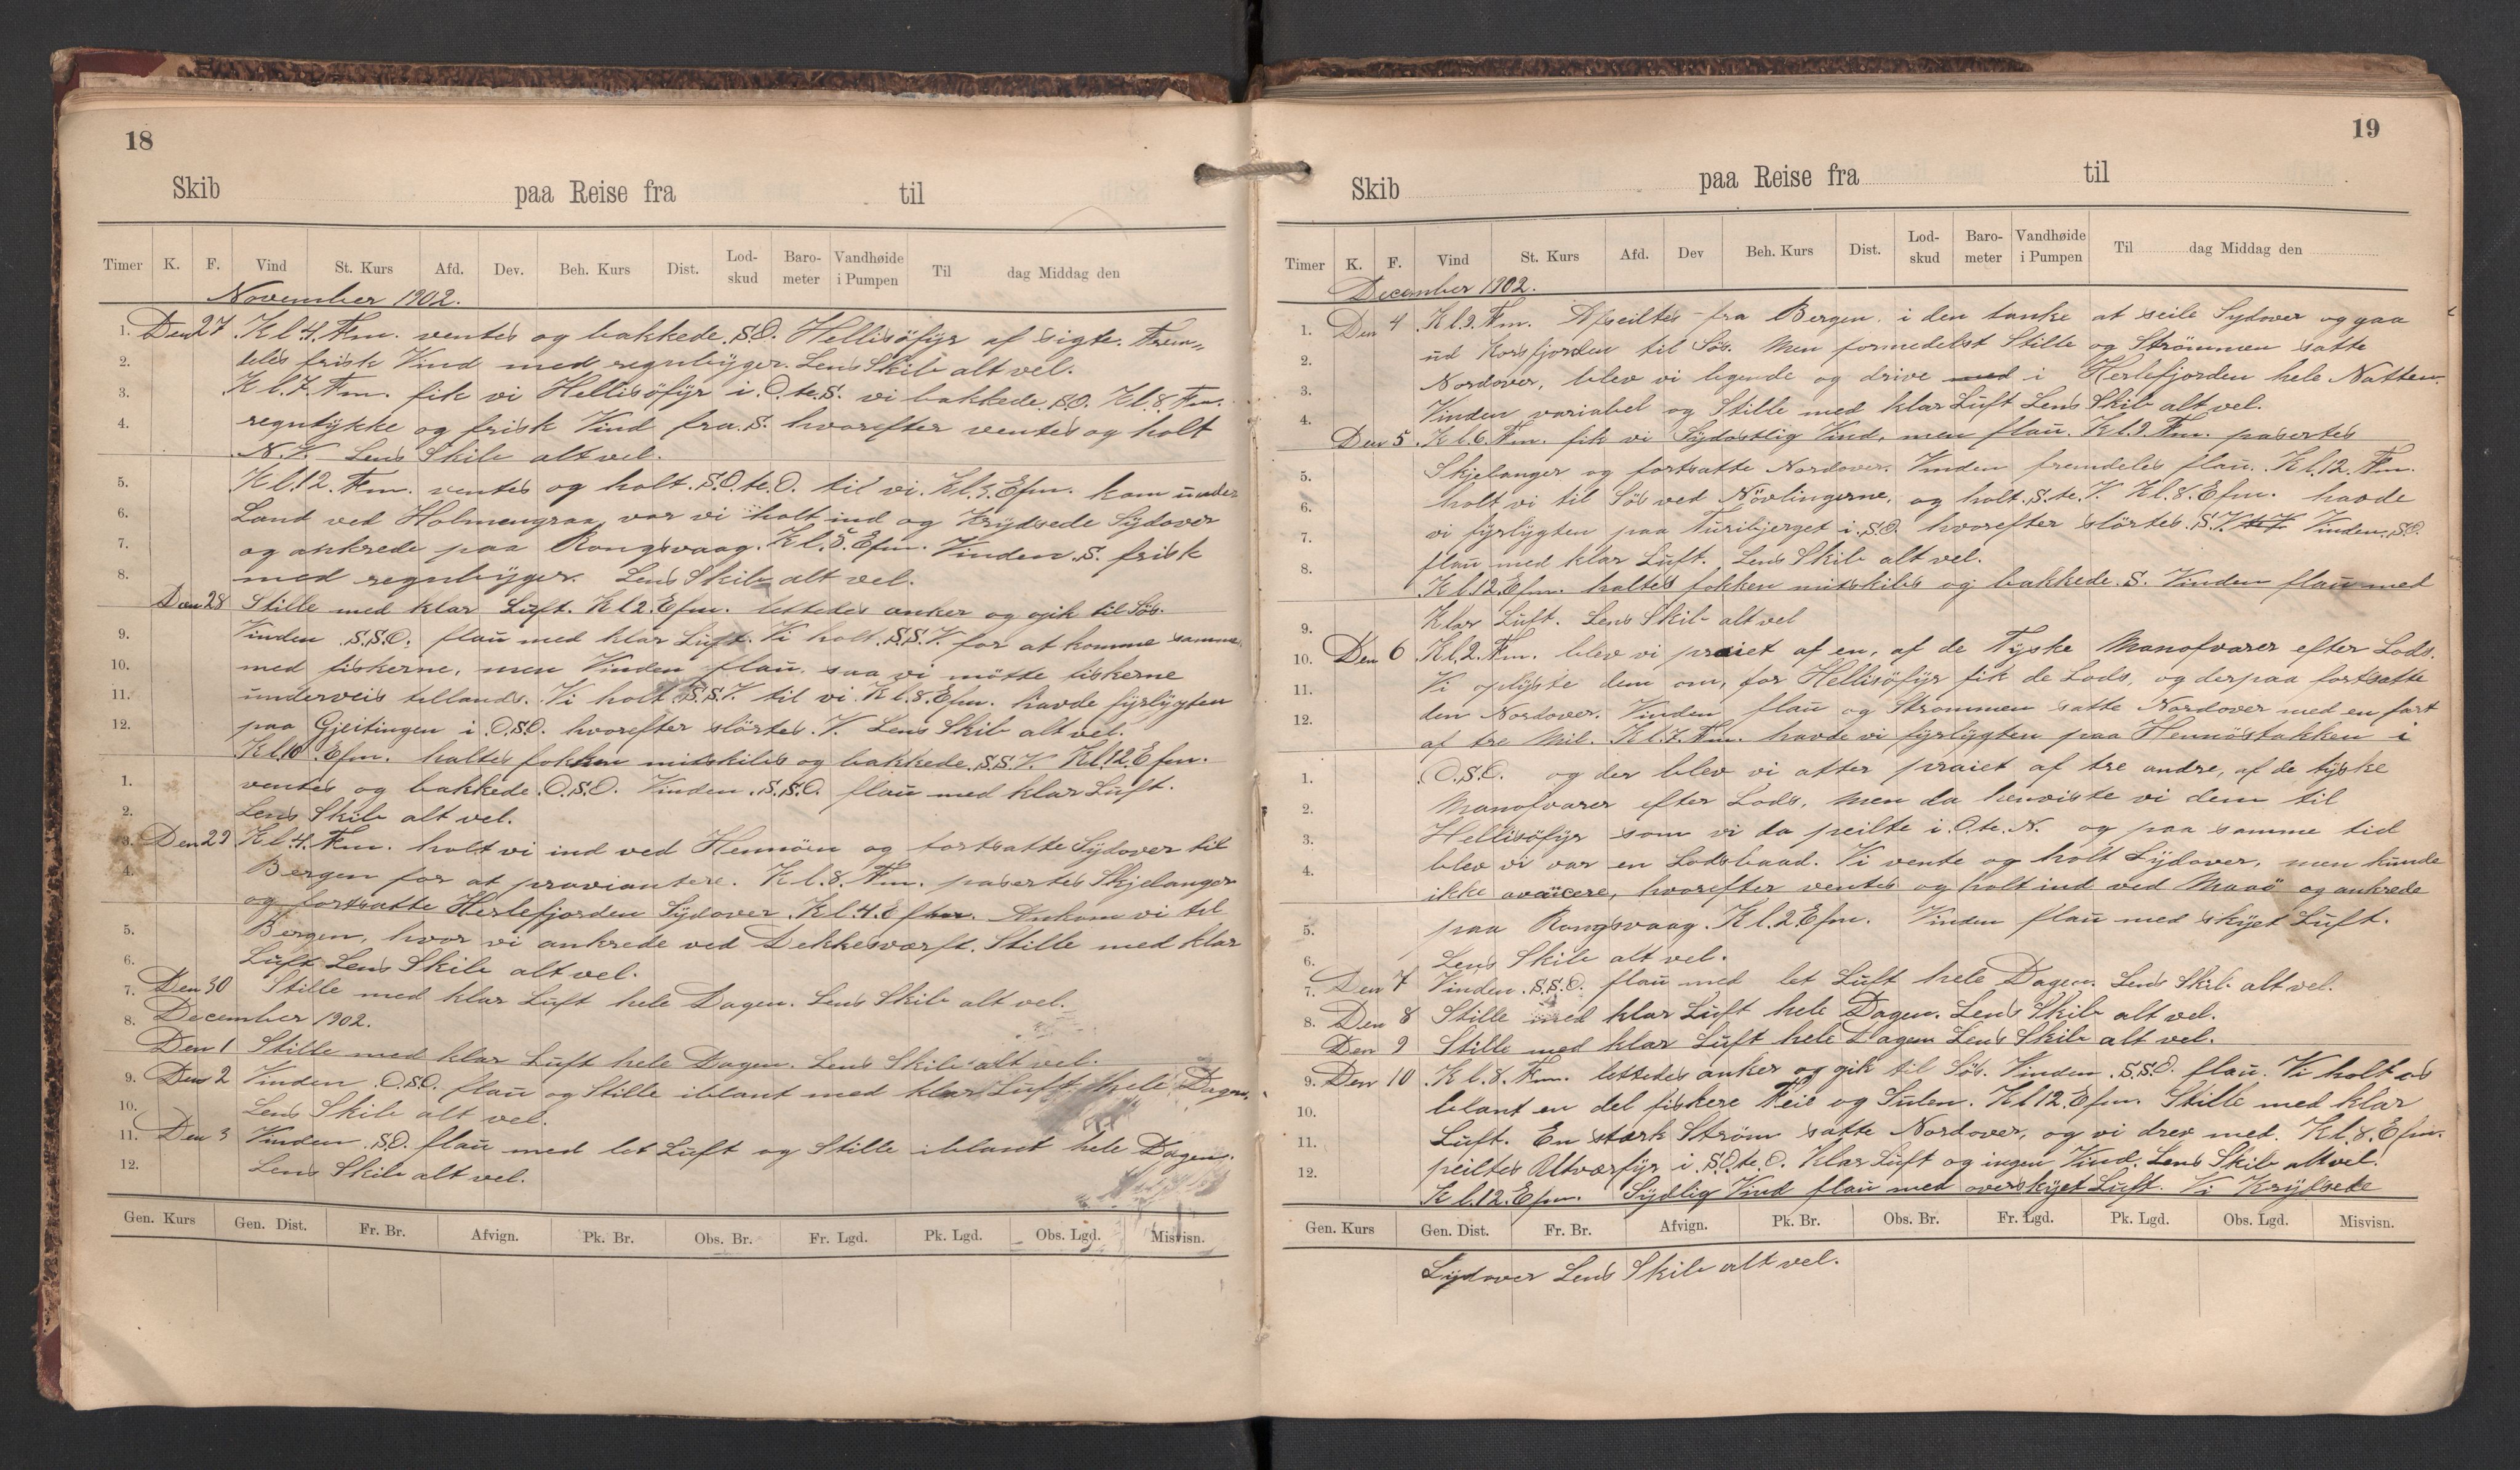 18
Skib paa Reise fra til
Timer K. F. Vind St. Kurs Afd. Dev. Beh. Kurs Dist. Lod-skud Baro-meter Vandhøide i Pumpen Til dag Middag den
November 1902.
1. Den 27 Kl.4. Fm. ventes og bakkede S.O. Hellisöfyr af sigte. Frem„
2. deles frisk Vind med regnbyger. Lens Skib alt vel.
3. Kl.7. Fm. fik vi Hellisöfyr i O.te.S. vi bakkede S.O. Kl.8. Fm.
4. regntykke og frisk Vind fra S. hvorefter ventes og holt
N.V. Lens Skib alt vel.
5. Kl.12. Fm. ventes og holt S.O.te.O. til vi Kl.3. Efm. kom under
6. Land ved Holmengraa, vor vi holt ind og Krydsede Sydover
7. og ankrede paa Rongsvaag. Kl.5. Efm. Vinden S. frisk
8. med regnbyger. Lens Skib alt vel.
Den 28 Stille med klar Luft. Kl 2. Efm. lettedes anker og gik til Sös.
9. Vinden S.S.O. flau med klar Luft. Vi holt S.S.V. for at komme samme
10. med fiskerne, men Vinden flau, saa vi mötte fiskerne
11. underveis tillands. Vi holt S.S.V. til vi Kl.8. Efm. havde fyrlygten
12. paa Gjeitingen i O.S.O. hvorefter slörtes V. Lens Skib alt vel.
Kl.10. Efm. haltes fokken mitskibs og bakkede S.S.V. Kl.12. Efm.
1. ventes og bakkede O.S.O. Vinden S.S.O. flau med klar Luft.
2. Lens Skib alt vel.
3. Den 29 Kl.4. Fm. holt vi ind ved Hennöen og fortsatte Sydover til
4. Bergen for at proviantere. Kl.8. Fm. pasertes Skjelanger
og fortsatte Herlefjorden Sydover. Kl.4. Efm. Ankom vi til
5. Bergen, hvor vi ankrede ved Dekkesværft. Stille med klar
6. Luft Lens Skib alt vel.
7. Den 30 Stille med klar Luft hele Dagen. Lens Skib alt vel.
8. December 1902.
Den 1 Stille med klar Luft hele Dagen. Lens Skib alt vel.
9. Den 2 Vinden O.S.O. flau og Stille iblant med klar Luft hele Dagen.
10. Lens Skib alt vel.
11. Den 3 Vinden S.O. flau med let Luft og Stille iblant hele Dagen.
12. Lens Skib alt vel.
Gen. Kurs Gen. Dist. Fr. Br. Afvign. Pk. Br. Obs. Br. Fr. Lgd. Pk. Lgd. Obs. Lgd. Misvisn.
19
Skib paa Reise fra til
Timer K. F. Vind St. Kurs Afd. Dev Beh. Kurs Dist. Lod-skud Baro-meter Vandhøide i Pumpen Til dag Middag den
December 1902.
1. Den 4 Kl.9. Fm. Afseiltes fra Bergen. i den tanke at seile Sydover og gaa
2. ud Korsfjorden til Sös. Men formedelst Stille og Strömmen satte
3. Nordover, blev vi ligende og drive med i Herlefjorden hele Natten.
4. Vinden variabel og Stille med klar Luft Lens Skib alt vel.
Den 5 Kl.6. Fm. fik vi Sydostlig Vind, men flau. Kl.9. Fm. pasertes
5. Skjelanger og fortsatte Nordover. Vinden fremdeles flau. Kl.12. Fm.
6. holt vi til Sös ved Növlingerne, og holt S.te.V. Kl.8. Efm. havde
7. vi fyrlygten paa Turibjerget i S.O. hvorefter slörtes S.V. te V. Vinden S.O.
8. flau med klar Luft. Lens Skib alt vel.
Kl.12. Efm. haltes fokken mitskibs og bakkede S. Vinden flau med
9. Klar Luft. Lens Skib alt vel
10. Den 6 Kl.2. Fm. blev vi praiet af en, af de Tyske Manofvarer efter Lods.
11. Vi oplyste dem om, for Hellisöfyr fik de Lods, og derpaa fortsatte
12. den Nordover. Vinden flau og Strömmen satte Nordover med en fart
af tre Mil. Kl.7. Fm. havde vi fyrlygten paa Hennöstakken i
1. O.S.O. og der blev vi atter praiet af tre andre, af de tyske
2. Manofvarer efter Lods, men da henviste vi dem til
3. Hellisöfyr som vi da peilte i O.te.N. og paa samme tid
4. blev vi var en Lodsbaad. Vi vente og holt Sydover, men kunde
ikke avancere, hvorefter ventes og holt ind ved Maaö og ankrede
5. paa Rongsvaag. Kl.2 Efm. Vinden flau med skyet Luft.
6. Lens Skib alt vel.
7. Den 7 Vinden S.S.O. flau med let Luft hele Dagen. Lens Skib alt vel.
8. Den 8 Stille med klar Luft hele Dagen. Lens Skib alt vel.
Den 9 Stille med klar Luft hele Dagen Lens Skib alt vel.
9. Den 10 Kl.8. Fm. lettedes anker og gik til Sös. Vinden S.S.O. flau. Vi holt os
10. blant en del fiskere Feie og Sulen. Kl 12. Efm. Stille med klar
11. Luft. En stærk Ström satte Nordover, og vi drev med. Kl.8. Efm.
12. peiltes Utværfyr i S.O.te.O. Klar Luft og ingen Vind. Lens Skib alt vel.
Kl.12. Efm. Sydlig Vind flau med overskyet Luft. Vi Krydsede
Gen. Kurs Gen. Dist. Fr. Br. Afvign. Pk. Br. Obs. Br. Fr. Lgd. Pk. Lgd. Obs. Lgd. Misvisn.
Sydover Lens Skib alt vel.